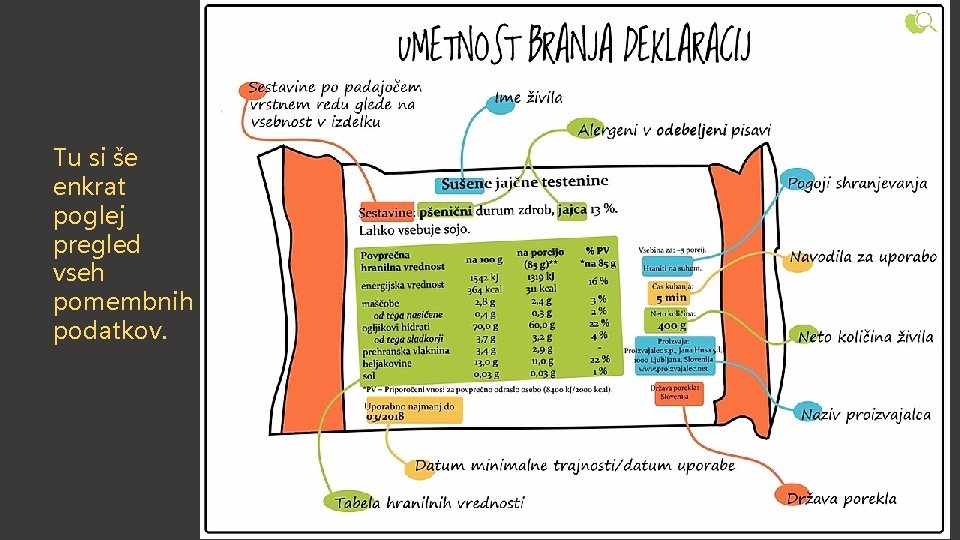 UMETNOST BRANJA DEKLARACIJ
Tu si še
enkrat
poglej
pregled
vseh
pomembnih
podatkov.
Sestavine po padajočem
vrstnem redu glede na
vsebnost v izdelku
Ime živila
Alergeni v odebeljeni pisavi
Pogoji shranjevanja
Navodila za uporabo
Neto količina živila
Naziv proizvajalca
Država porekla
Datum minimalne trajnosti/datum uporabe
Tabela hranilnih vrednosti
Sušene jajčne testenine
Sestavine: pšenični durum zdrob, jajca 13 %.
Lahko vsebuje sojo.
Povprečna hranilna vrednost na 100 g na porcijo (85 g)** % PV *na 85 g
energijska vrednost 1542 kJ 364 kcal 1319 kJ 311 kcal 16 %
maščobe 2,8 g 2,4 g 3 %
od tega nasičene 0,4 g 0,3 g 2 %
ogljikovi hidrati 70,0 g 60,0 g 22 %
od tega sladkorji 3,7 g 3,2 g 4 %
prehranska vlaknina 3,4 g 2,9 g -
beljakovine 13,0 g 11,0 g 22 %
sol 0,03 g 0,03 g 1 %
*PV = Priporočeni vnosi za povprečno odraslo osebo (8400 kJ/2000 kcal).
Uporabno najmanj do
03/2018
Vsebina za: ~5 porcij.
Hraniti na suhem.
Čas kuhanja:
5 min
Neto količina:
400 g
Proizvaja:
Proizvajalec s.p., Jana Husa 5,
1000 Ljubljana, Slovenija
www.proizvajalec.net
Država porekla:
Slovenija